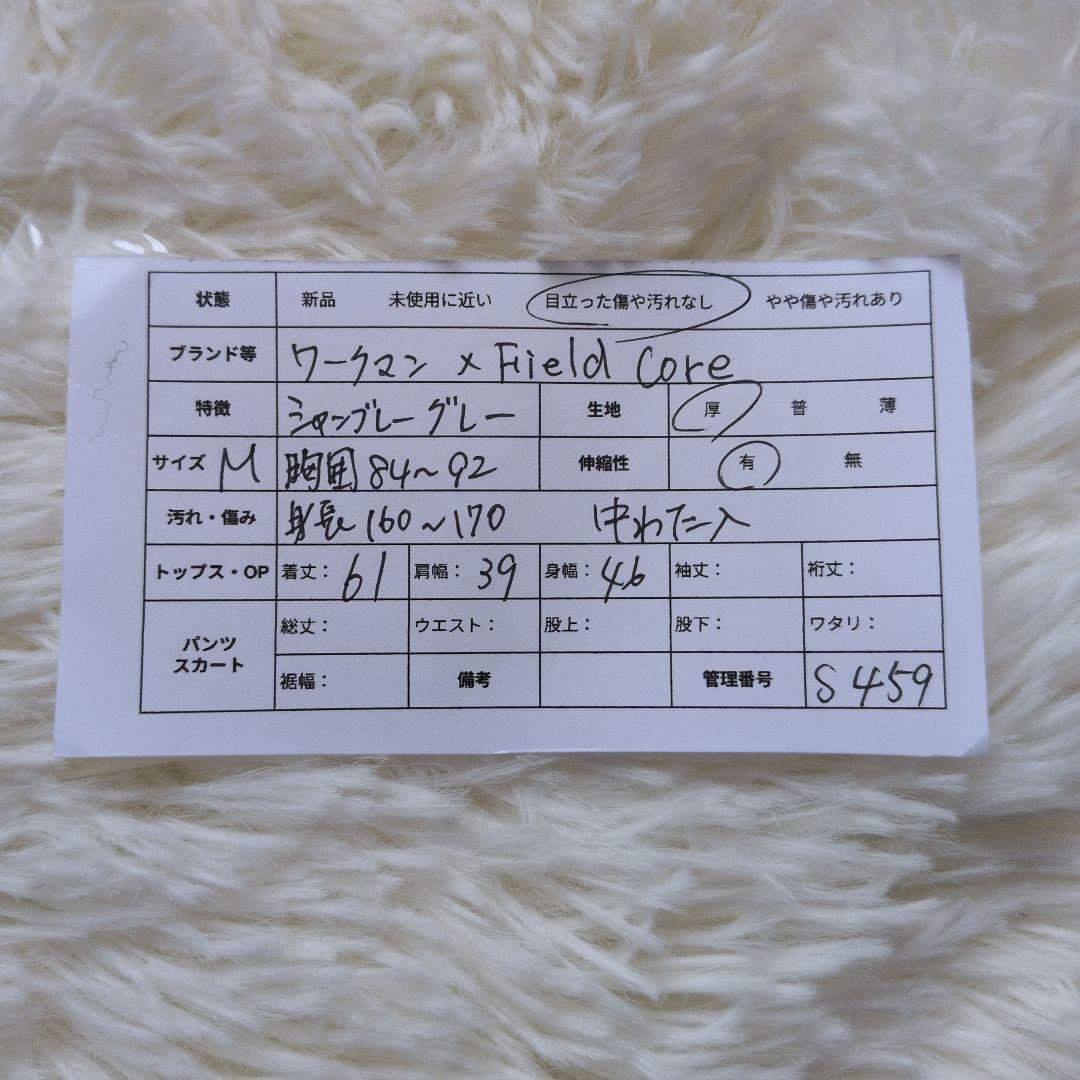 状態 新品 未使用に近い 目立った傷や汚れなし やや傷や汚れあり
ブランド等 ワークマン × Field Core
特徴 シャンブレーグレー 生地 厚 普 薄
サイズ M 胸囲 84～92 伸縮性 有 無
汚れ・傷み 身長 160～170 中わた入
トップス・OP 着丈： 61 肩幅： 39 身幅： 46 袖丈： 裄丈：
パンツ スカート 総丈： ウエスト： 股上： 股下： ワタリ：
裾幅： 備考 管理番号 S459